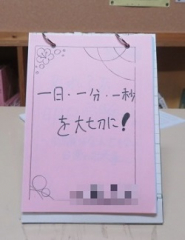 一日・一分・一秒
を大切に!